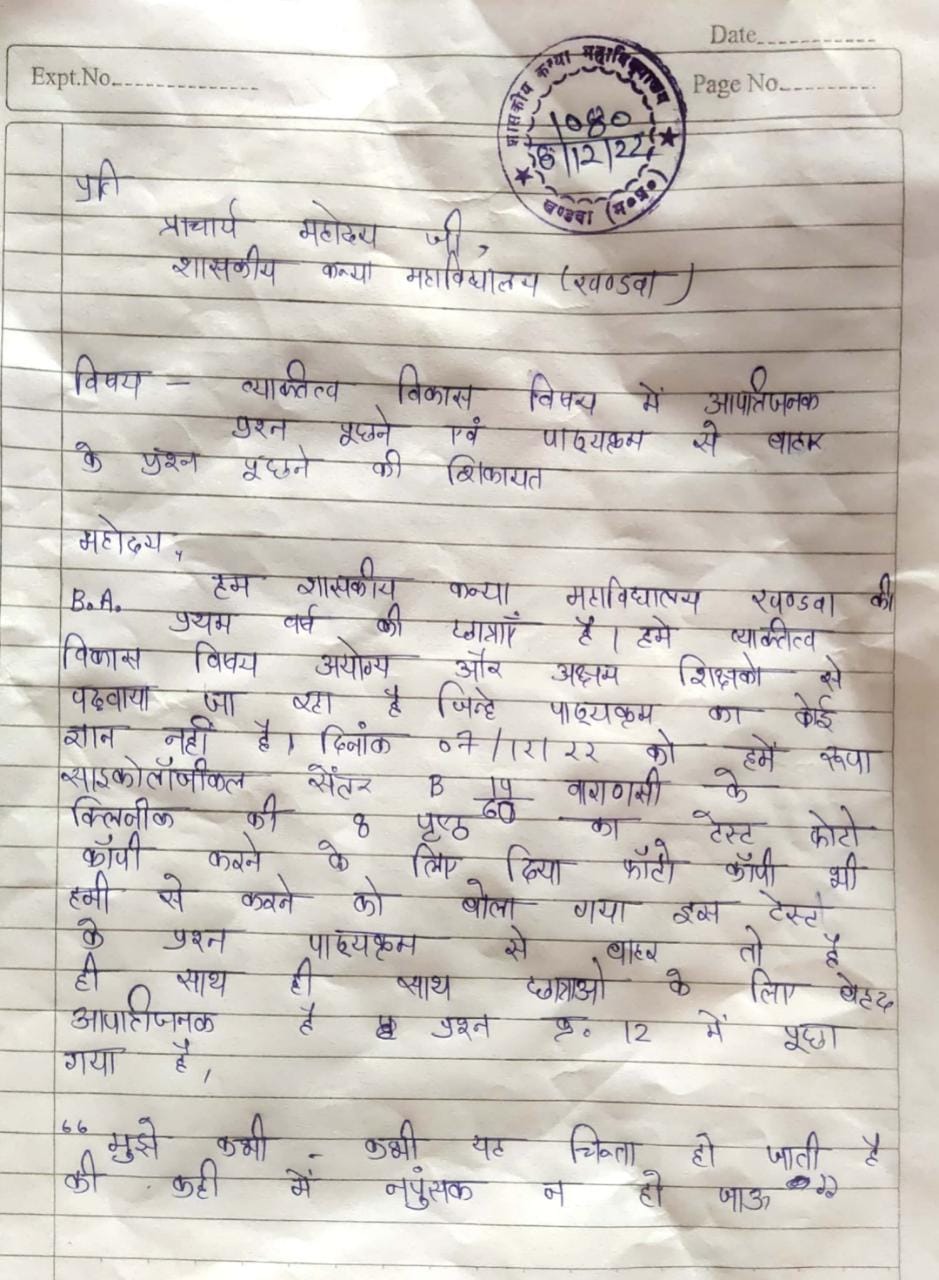 Date
Expt.No.
Page No.
शासकीय कन्या महाविद्यालय
1080
8/12/22
खण्डवा (म०प्र०)
प्रति
प्राचार्य महोदय जी,
शासकीय कन्या महाविद्यालय (खण्डवा)
विषय - व्याक्तित्व विकास विषय में आपातिजनक
प्रश्न पूछने एवं पाठ्यक्रम से बाहर
के प्रश्न पूछने की शिकायत
महोदय,
हम शासकीय कन्या महाविद्यालय खण्डवा की
B.A. प्रथम वर्ष की छात्राएँ है। हमे व्याक्तित्व
विकास विषय अयोग्य और अक्षम शिक्षको से
पढवाया जा रहा है जिन्हे पाठ्यक्रम का कोई
ज्ञान नही है। दिनांक 07/12/22 को हमें रूपा
साइकोलॉजीकल सेंतर B 19/60 वाराणसी के
क्लिनीक की 8 पृष्ठ का टेस्ट फोटो
कॉपी करने के लिए दिया फॉटो कॉपी भी
हमी से करने को बोला गया इस टेस्ट
के प्रश्न पाठ्यक्रम से बाहर तो है
ही साथ ही साथ छात्राओ के लिए बेहद
आपातिजनक है प्रश्न क्र. 12 में पूछा
गया है,
"मुझे कभी - कभी यह चिन्ता हो जाती है
की कही में नपुंसक न हो जाऊ"